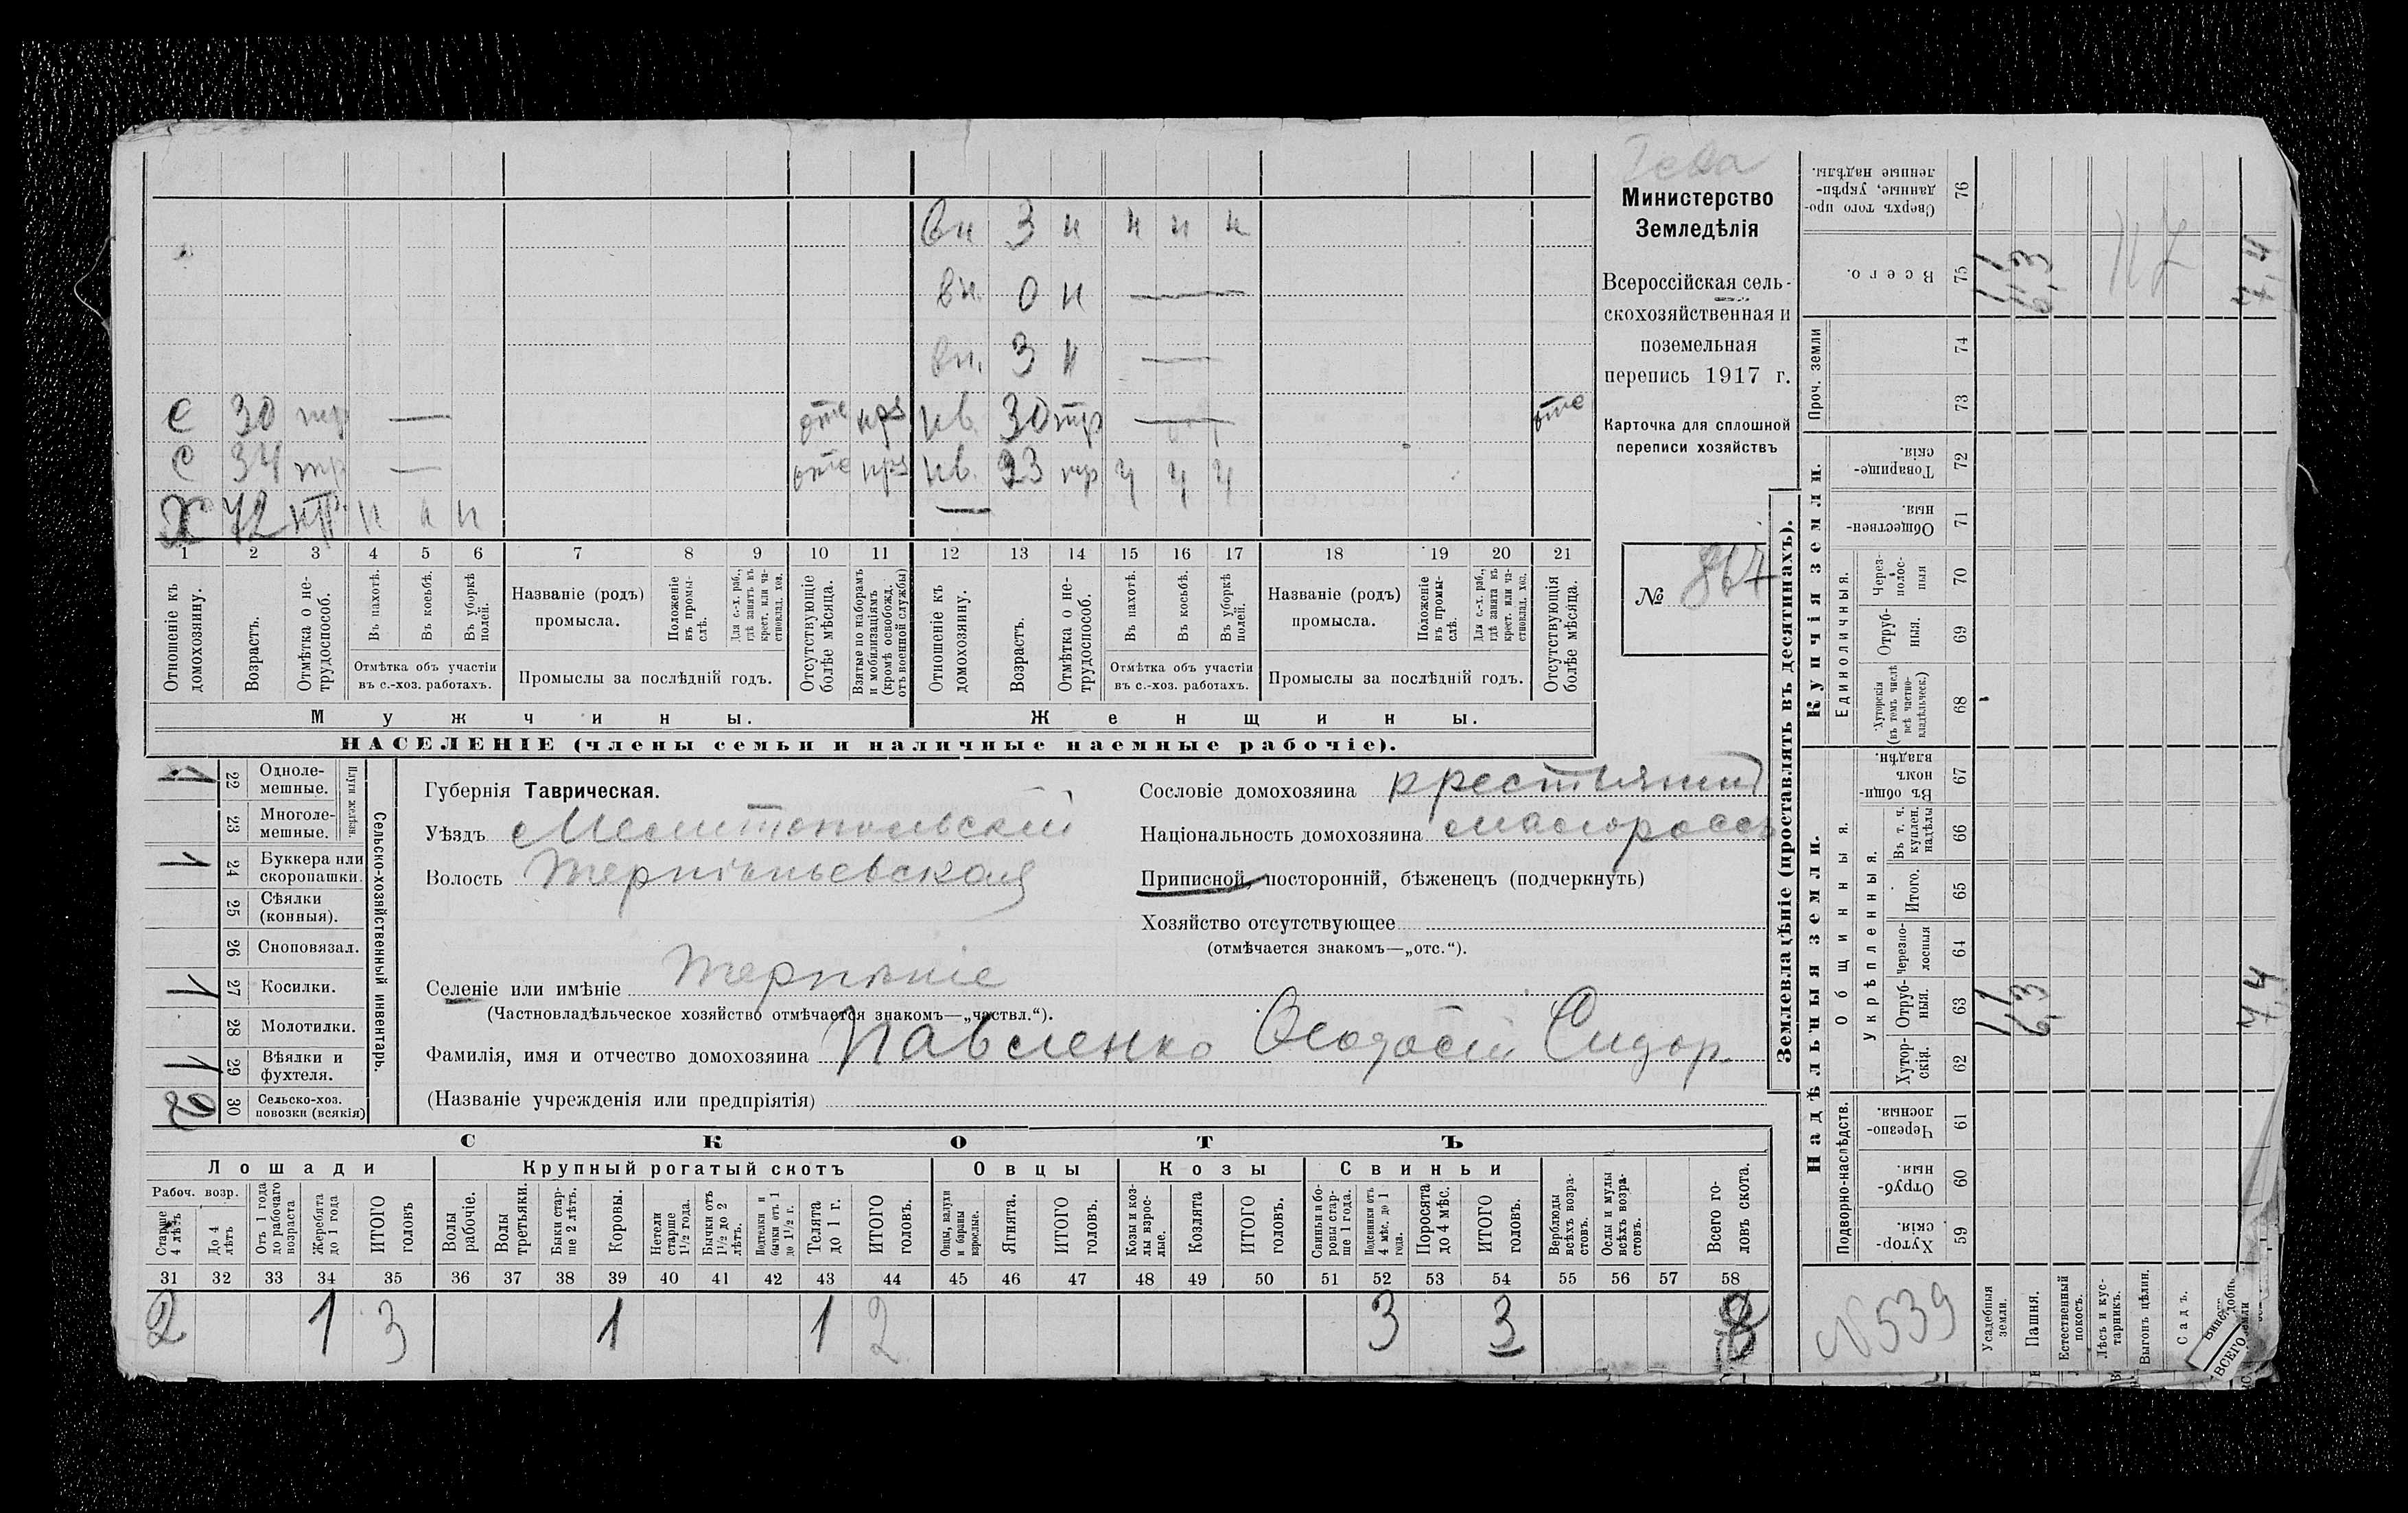 вн 3 н н н н
вн. 0 н —
вн. 3 н —
с 30 тр — отс нрз нв 30 тр — отс
с 34 тр — отс нрз нв. 23 тр ч ч ч
Х 72 н н н —
1 2 3 4 5 6 7 8 9 10 11 12 13 14 15 16 17 18 19 20 21
Отношеніе къ домохозяину.
Возрастъ.
Отмѣтка о не-
трудоспособ.
Въ пахотѣ.
Въ косьбѣ.
Въ уборкѣ полей.
Отмѣтка объ участіи
въ с.-хоз. работахъ.
Названіе (родъ)
промысла.
Положеніе въ промы-
слѣ.
Для с.-х. раб.,
гдѣ занятъ въ
крест. или ча-
стновлад. хоз.
Промыслы за послѣдній годъ.
Отсутствующіе
болѣе мѣсяца.
Взятые по наборамъ
и мобилизаціямъ
(кромѣ освобожд.
отъ военной службы)
Отношеніе къ
домохозяину.
Возрастъ.
Отмѣтка о не-
трудоспособ.
Въ пахотѣ.
Въ косьбѣ.
Въ уборкѣ
полей.
Отмѣтка объ участіи
въ с.-хоз. работахъ.
Названіе (родъ)
промысла.
Положеніе
въ промы-
слѣ.
Для с.-х. раб.,
гдѣ занята въ
крест. или ча-
стновлад. хоз.
Промыслы за послѣдній годъ.
Отсутствующія
болѣе мѣсяца.
Мужчины.
Женщины.
НАСЕЛЕНІЕ (члены семьи и наличные наемные рабочіе).
Министерство
Земледѣлія
Всероссійская сель-
скохозяйственная и
поземельная
перепись 1917 г.
Карточка для сплошной
переписи хозяйствъ
№ 867
Сельско-хозяйственный инвентарь.
Плуги желѣзн.
1 22 Одноле-
мешные.
23 Многоле-
мешные.
1 24 Буккера или
скоропашки.
25 Сѣялки
(конныя).
26 Сноповязал.
1 27 Косилки.
28 Молотилки.
1 29 Вѣялки и
фухтеля.
2 30 Сельско-хоз.
повозки (всякія)
Губернія Таврическая.
Уѣздъ Мелитопольскій
Волость Терпѣньевская
Селеніе или имѣніе Терпѣніе
(Частновладѣльческое хозяйство отмѣчается знакомъ—„частвл.“).
Фамилія, имя и отчество домохозяина Павленко Ѳеодосій Сидор.
(Названіе учрежденія или предпріятія)
Сословіе домохозяина крестьянин
Національность домохозяина малоросс
Приписной, посторонній, бѣженецъ (подчеркнуть)
Хозяйство отсутствующее
(отмѣчается знакомъ—„отс.“).
СКОТЪ
Лошади
Крупный рогатый скотъ
Овцы
Козы
Свиньи
Рабоч. возр.
Старше
4 лѣтъ
До 4
лѣтъ
Отъ 1 года
до рабочаго
возраста
Жеребята
до 1 года
ИТОГО
головъ
Волы
рабочіе.
Волы
третьяки.
Быки стар-
ше 2 лѣтъ.
Коровы.
Нетели
старше
1½ года.
Бычки отъ
1½ до 2
лѣтъ.
Подтелки и
бычки отъ 1
до 1½ г.
Телята
до 1 г.
ИТОГО
головъ.
Овцы, валухи
и бараны
взрослые.
Ягнята.
ИТОГО
головъ.
Козы и коз-
лы взрос-
лые.
Козлята
ИТОГО
головъ.
Свиньи и бо-
ровы стар-
ше 1 года.
Подсвинки отъ
4 мѣс. до 1
года.
Поросята
до 4 мѣс.
ИТОГО
головъ.
Верблюды
всѣхъ возра-
стовъ.
Ослы и мулы
всѣхъ возра-
стовъ.
Всего го-
ловъ скота.
31 32 33 34 35 36 37 38 39 40 41 42 43 44 45 46 47 48 49 50 51 52 53 54 55 56 57 58
2 1 3 1 1 2 3 3 8
Землевладѣніе (проставлять въ десятинахъ).
Надѣльныя земли.
Купчія земли.
Проч. земли
Подворно-наслѣдств.
Общинныя.
Укрѣпленныя.
Единоличныя.
Сверхъ того про-
данные, укрѣп-
ленные надѣлы.
76
Всего.
75
74
73
Товарище-
скія.
72
Обществен-
ныя.
71
Через-
полос-
ныя
70
Отруб-
ныя.
69
Хуторскія
(въ томъ числѣ
всѣ частно-
владѣльческ.)
68
Въ общи-
номъ
владѣн.
67
Въ т. ч.
куплен.
надѣлы
66
Итого.
65
Черезпо-
лосныя
64
Отруб-
ныя.
63
Хутор-
скія.
62
Черезпо-
лосныя.
61
Отруб-
ныя.
60
Хутор-
скія.
59
1,1 6,3 7,4
1,1 6,3 7,4
N539
Усадебныя
земли.
Пашня.
Естественный
покосъ.
Лѣсъ и кус-
тарникъ.
Выгонъ цѣлин.
Садъ.
ВСЕГО